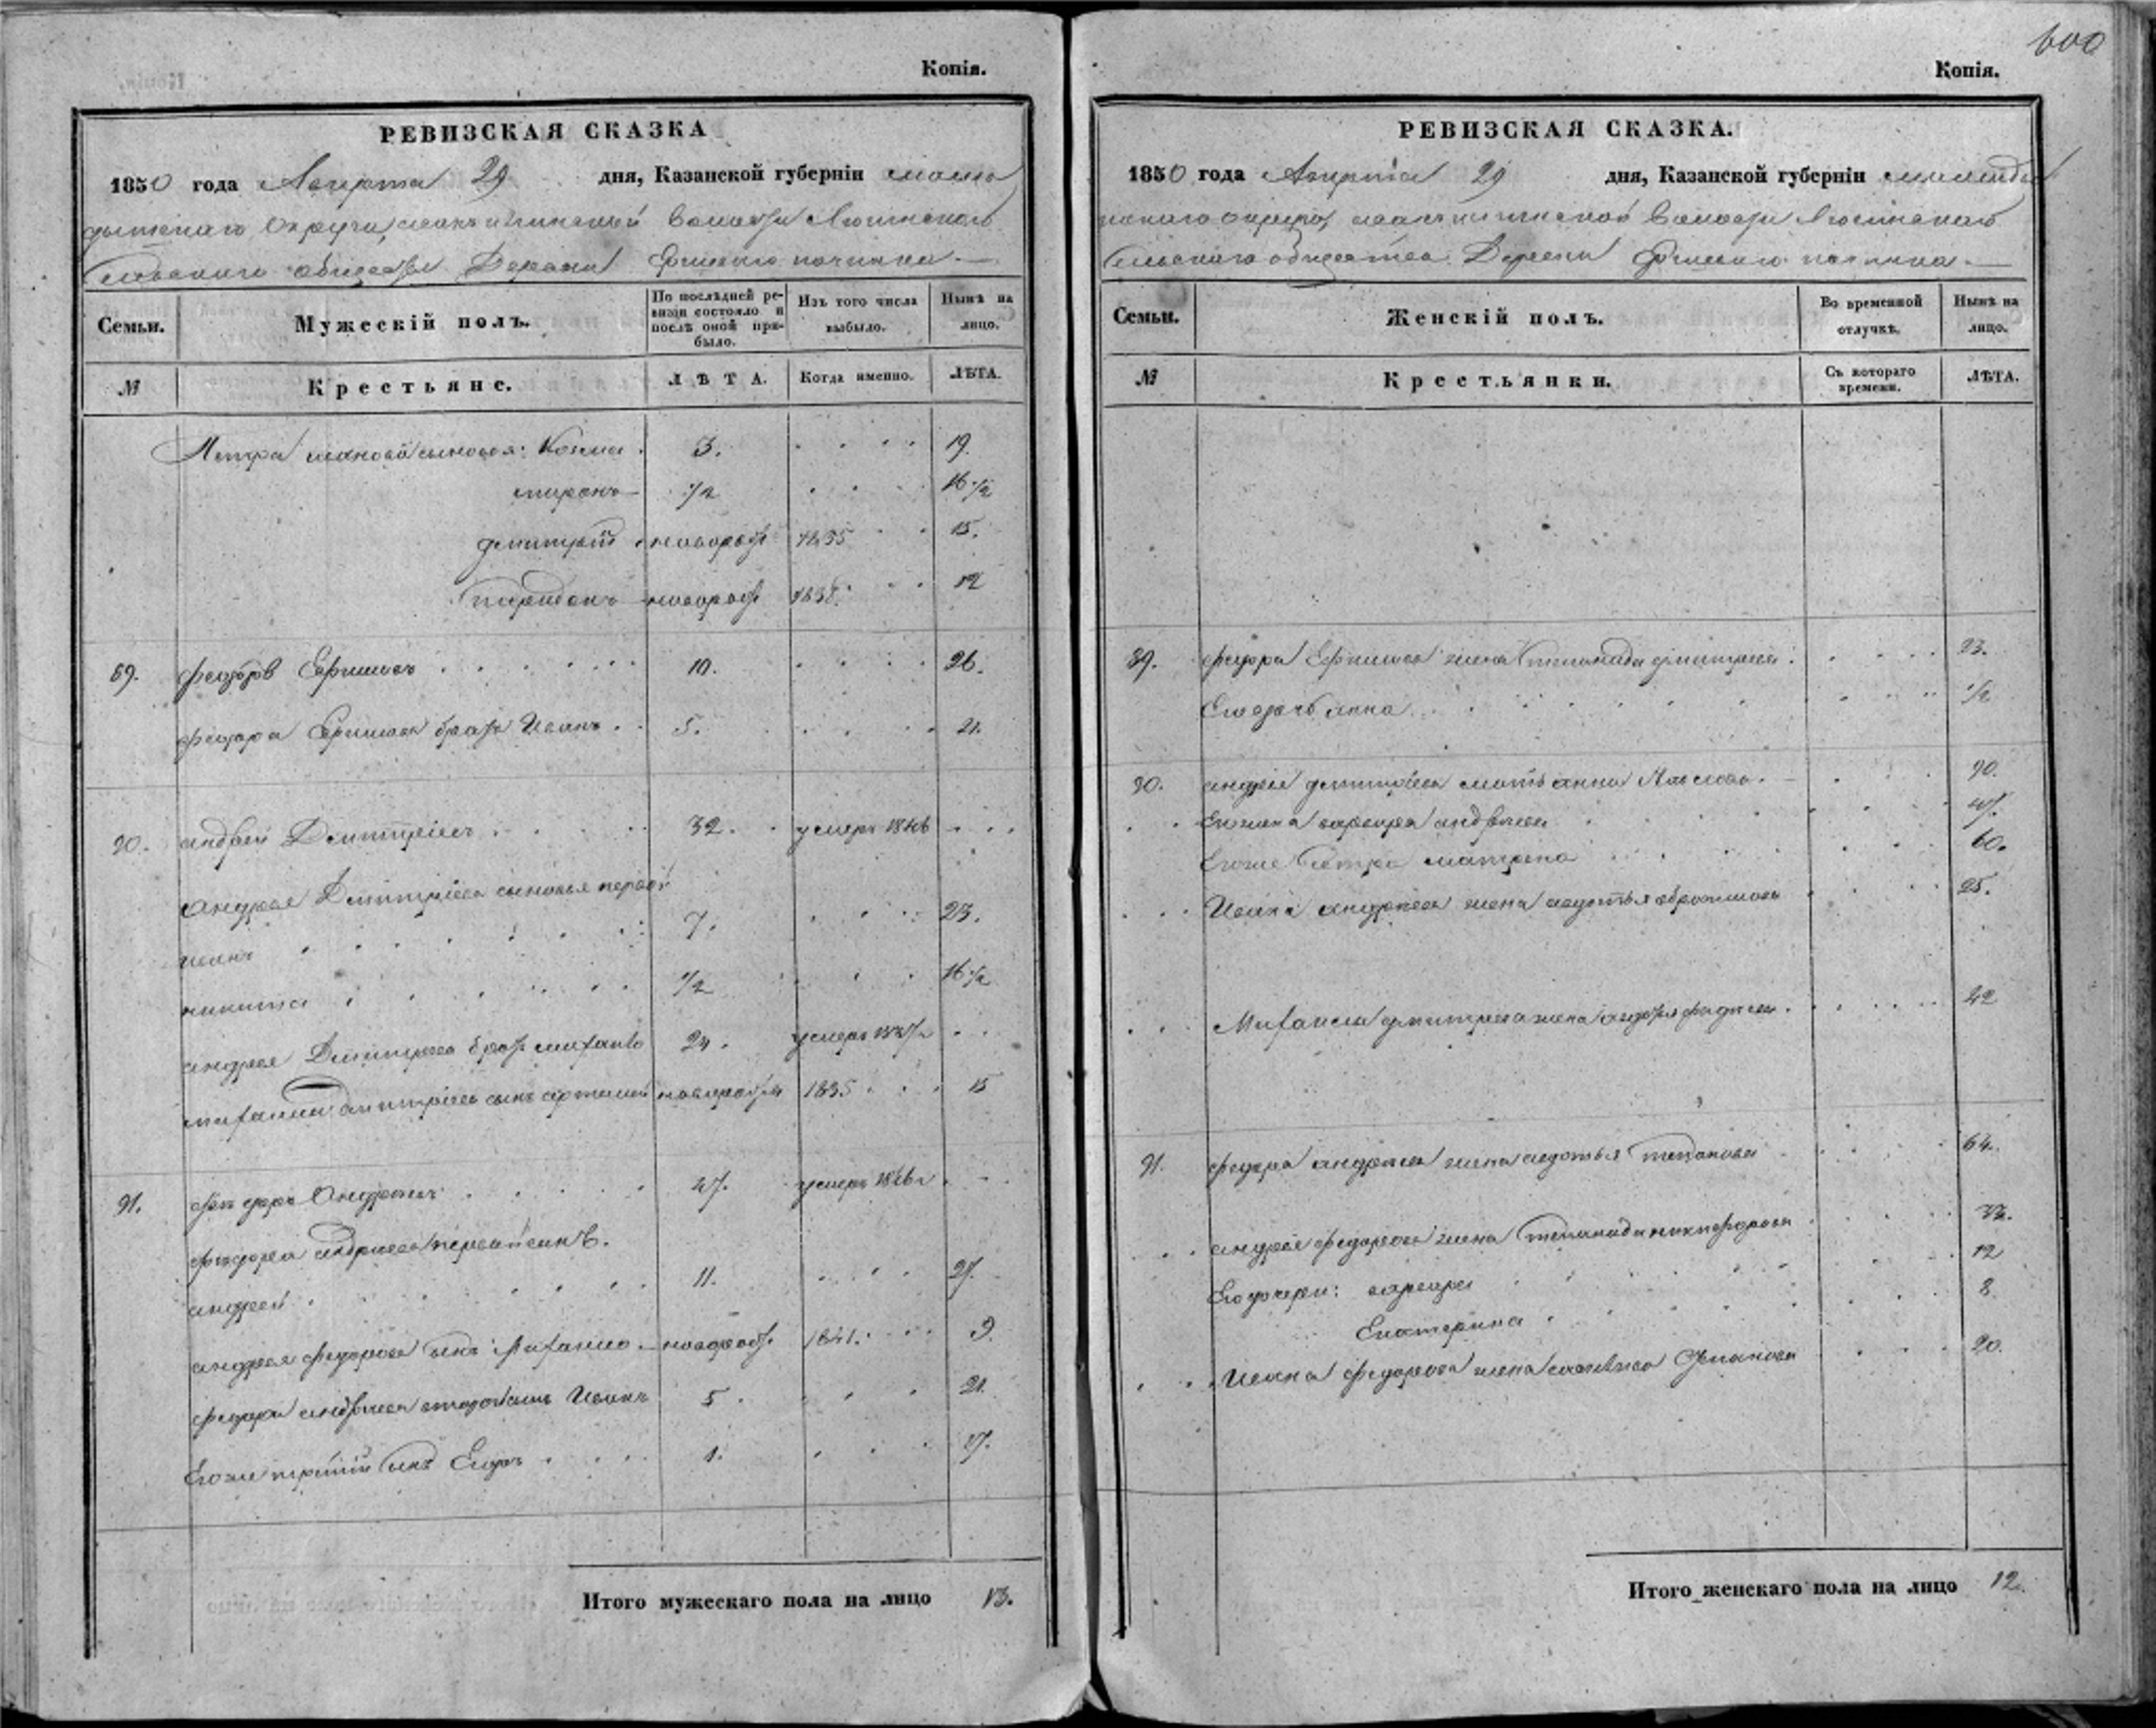 Копія.
РЕВИЗСКАЯ СКАЗКА
1850 года Августа 29 дня, Казанской губерніи мама
дышскаго Округа, волости
Сельскаго общества Деревни починка
Семьи.
Мужескій полъ.
По послѣдней ре-
визіи состояло и
послѣ оной при-
было.
Изъ того числа
выбыло.
Нынѣ на
лицо.
№
Крестьяне.
ЛѢТА.
Когда именно.
ЛѢТА.
Петра Иванова сыновья: Козма 3. 19.
миронъ 1/2 16 1/2
дмитрій новорожд 1835 15.
спиридонъ новорожд 1838. 12
89. федоръ Ефимовъ 10. 26.
федора Ефимова братъ Иванъ 5. 21.
90. андрей Дмитріевъ 32. умеръ 1846
Андрея Дмитріева сыновья первой
иванъ 7. 23.
никита 1/2 16 1/2
андрея Дмитріева братъ михаило 24. умеръ
михаила дмитріева сынъ новорожден 1835 15
91. федоръ Андреевъ 47. умеръ
федора андреева первой сынъ.
андрей 11. 27.
андрея федорова сынъ Михаило новорожд. 1841. 9.
федора андреева второй сынъ Иванъ 5 21.
Егоже третій сынъ Егоръ 1. 17.
Итого мужескаго пола на лицо 13.
600
Копія.
РЕВИЗСКАЯ СКАЗКА.
1850 года Августа 29 дня, Казанской губерніи мамады
шскаго округа, волости
Сельскаго общества Деревни починка
Семьи.
Женскій полъ.
Во временной
отлучкѣ.
Нынѣ на
лицо.
№
Крестьянки.
Съ котораго
времени.
ЛѢТА.
89. федора Ефимова жена степанида дмитріева 23.
Его дочь анна 1/2
90. андрея дмитріева мать анна Павлова 90.
Его жена варвара андреева 47.
Егоже сестра матрена 60.
Ивана андреева жена авдотья 25.
Михаилы дмитріева жена 42
91. федора андреева жена авдотья степанова 64.
андрея федорова жена степанида никифорова 33.
Его дочери: варвара 12
Екатерина 8.
Ивана федорова жена Степанова 20.
Итого женскаго пола на лицо 12.